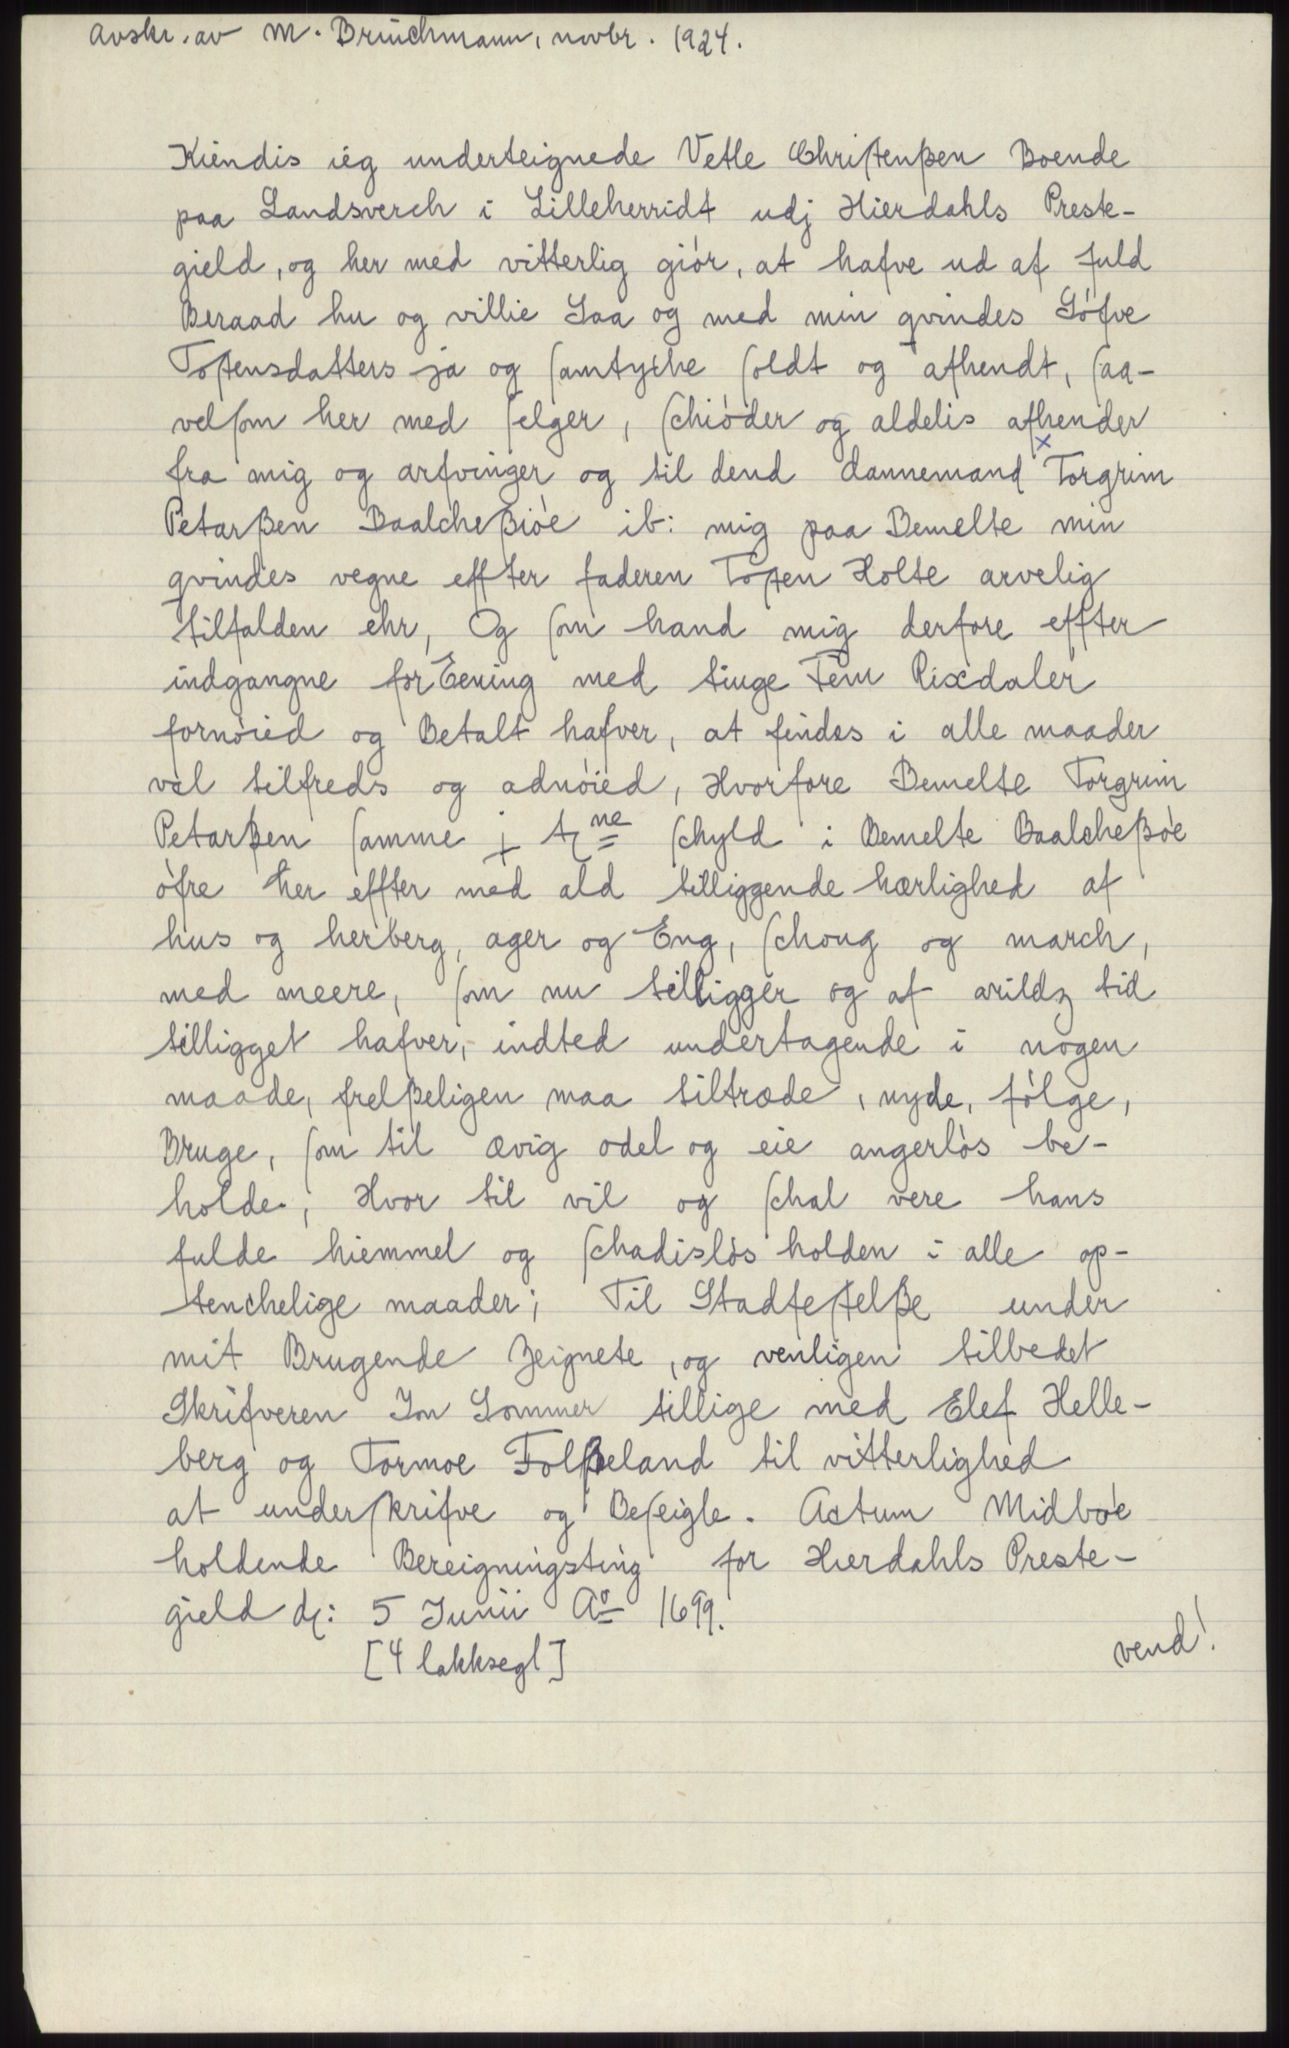 Avskr. av M. Brüchmann, novbr. 1924.
Kiendis ieg underteignede Vetle Chriſtenßen Boende
paa Landsverch i Lilleherridt udj Hierdahls Preste-
gield, og her med vitterlig giór, at hafve ud af fuld
Beraad hu og villie Saa og med min qvindes Göfve
Toſtensdatters ja og ſamtyche ſoldt og afhendt, ſaa-
velſom her med ſelger, ſchióder og aldelis afhender
fra mig og arfvinger og til dend dannemand x Torgrim
Petarßen Baalcheßióe ib: mig paa Bemelte min
qvindes vegne effter faderen Toſten Holte arvelig
tilfalden ehr, Og ſom hand mig derfore effter
indgangne forEening med tiuge Fem Rixdaler
fornóied og Betalt hafver, at findes i alle maader
vel tilfreds og adnóied, Hvorfore Bemelte Torgrim
Petarßen ſamme j tne ſchyld i Bemelte Baalcheßóe
ófre her effter med ald tilliggende hærlighed af
hus og herberg, ager og Eng, ſchoug og march,
med meere, ſom nu tilligger og af arildz tid
tilligget hafver, indted undertagende i nogen
maade, frelßeligen maa tiltræde, nyde, fólge,
Bruge, ſom til ævig odel og eie angerlós be-
holde, Hvor til vil og ſchal vere hans
fulde hiemmel og ſchadislós holden i alle op-
tenchelige maader; Til Stadfeſtelße under
mit Brugende Zeignete, og venligen tilbedet
Skrifveren Jon Sommer tillige med Elef Helle-
berg og Tormoe Folßeland til vitterlighed
at underſkrifve og Beſeigle. Actum Midbóe
holdende Bereigningsting for Hierdahls Preste-
gield d: 5 Junii Ao 1699.
[4 lakksegl]
vend!